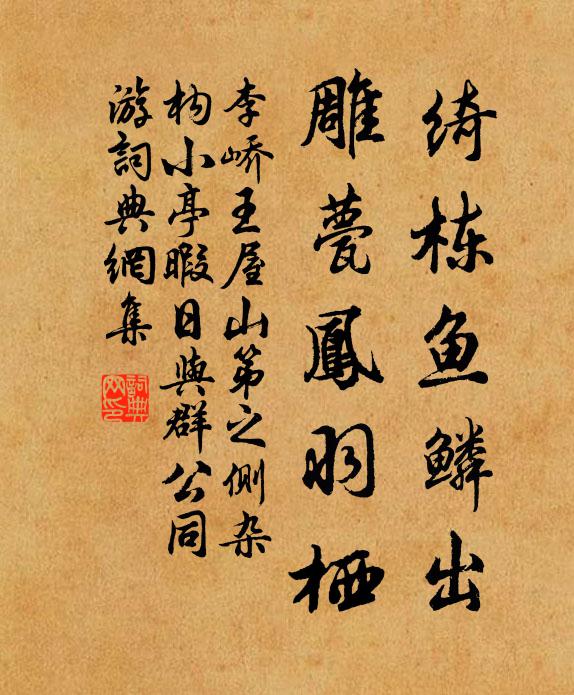 绮栋鱼鳞出
雕甍鳳羽栖
李峤王屋山第之侧杂
构小亭暇日與群公同
游詞典網集
詞典網印